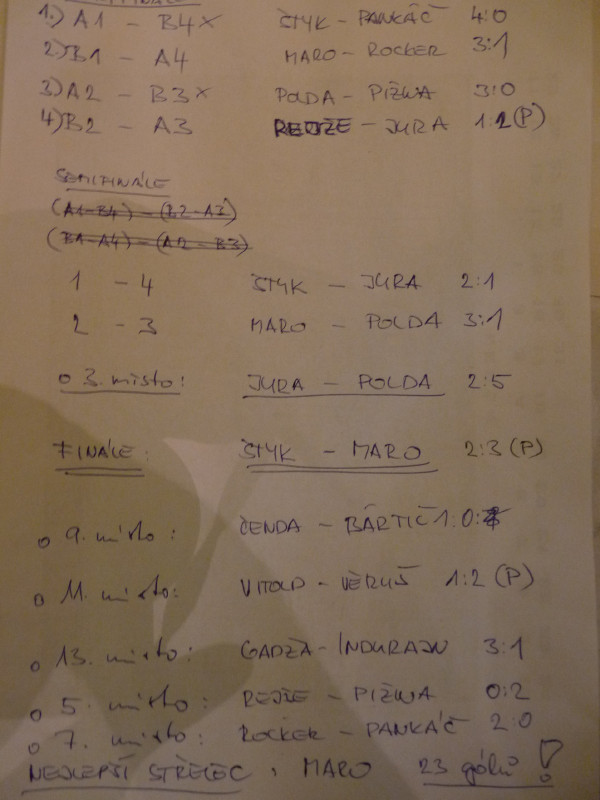 1.) A1 - B4 x ŠTYK - PANKÁČ 4:0
2) B1 - A4 MARO - ROCKER 3:1
3) A2 - B3 x POLDA - PIŽLA 3:0
4) B2 - A3 REJŽE - JURA 1:2 (P)
SEMIFINÁLE
(A1-B4) - (B2-A3)
(B1-A4) - (A2-B3)
1 - 4 ŠTYK - JURA 2:1
2 - 3 MARO - POLDA 3:1
o 3. místo: JURA - POLDA 2:5
FINÁLE: ŠTYK - MARO 2:3 (P)
o 9. místo: ČENDA - BÁRTIČ 1:0
o 11. místo: VITOLD - VĚRUŠ 1:2 (P)
o 13. místo: GADŽA - INDURAJN 3:1
o 5. místo: REJŽE - PIŽLA 0:2
o 7. místo: ROCKER - PANKÁČ 2:0
NEJLEPŠÍ STŘELEC, MARO 23 gólů!